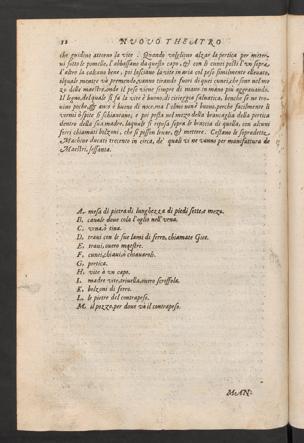 12 NUOVO THEATRO
che guidino attorno la vite. Quando vogliono alzar la portica per metter-
ui sotto le pomelle, l'abbassano da questo capo, & con li cunei posti l'un sopra
l'altro la calzano bene, poi lasciano la vite in aria col peso similmente elleuato,
il quale mentre và premendo, vanno tirando fuori di quei cunei, che sono nel me
zo delle maestre, onde il peso viene sempre di mano in mano più aggrauando.
Il legno, del quale si fà la vite è buono, di cireggia saluatica, benche se ne tro-
uino poche, & anco è buono di noce, ma l'olmo non è buono, perche facilmente li
vermi ò si schiantano; e poi posta nel mezo della brancaglia della portica
dentro della sua madre, la quale si riposa sopra le braccia di quella, con alcuni
ferri chiamati bolzoni, che si posson leuar, & mettere. Costano le sopradette
Machine ducati trecento in circa, de' quali vi ne vanno per manifattura de
Maestri, sessanta.
A. mesa di pietra di lunghezza di piedi sette e mezo.
B. canale doue cola l'oglio nell'vrna.
C. vrna, ò tina.
D. traui con le sue lami di ferro, chiamate Guee.
E. traui, ouero maestre.
F. cunei, chiaui, ò chiauaroli.
G. portica.
H. vite à vn capo.
I. madre vite, triuella, ouero scroffola.
K. bolzoni di ferro.
L. le pietre del contrapeso.
M. il pozzo, per doue và il contrapeso.
MAN-